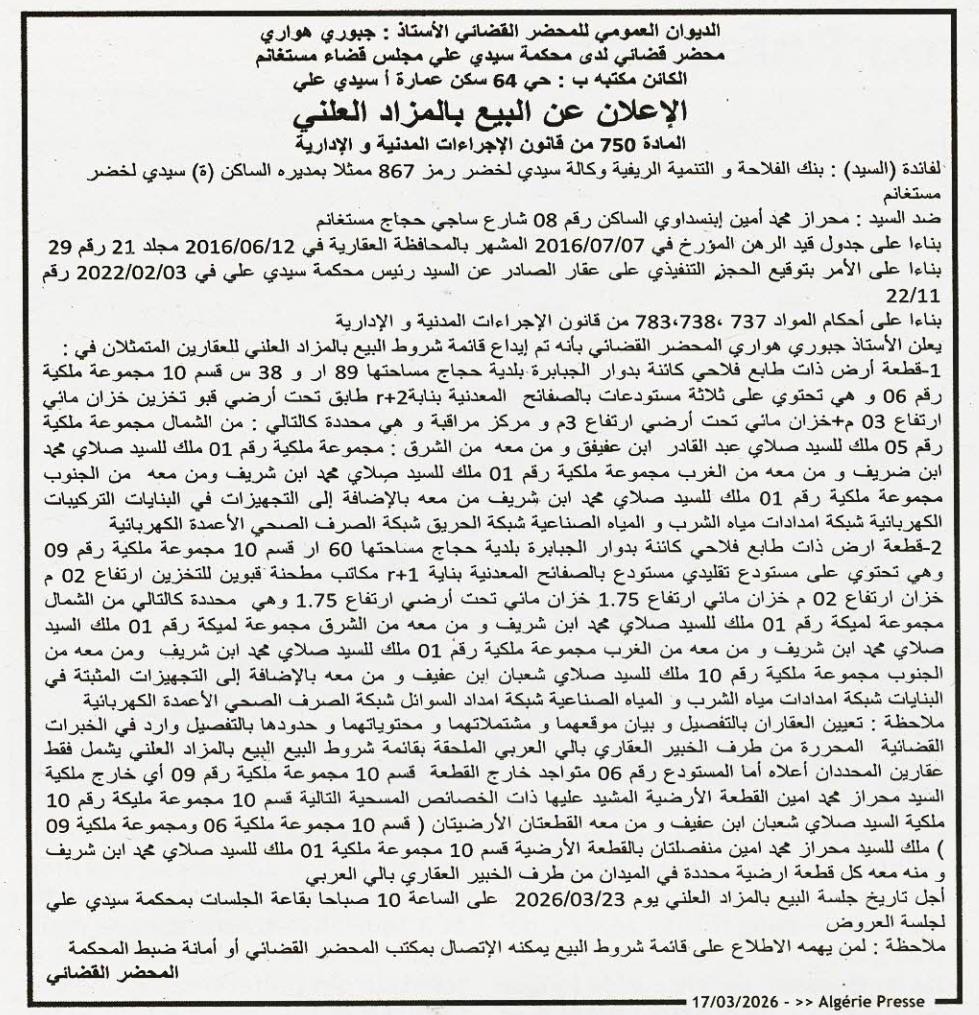 الديوان العمومي للمحضر القضائي الأستاذ : جبوري هواري
محضر قضائي لدى محكمة سيدي علي مجلس قضاء مستغانم
الكائن مكتبه ب : حي 64 سكن عمارة أ سيدي علي
الإعلان عن البيع بالمزاد العلني
المادة 750 من قانون الإجراءات المدنية و الإدارية
لفائدة (السيد) : بنك الفلاحة و التنمية الريفية وكالة سيدي لخضر رمز 867 ممثلا بمديره الساكن (ة) سيدي لخضر
مستغانم
ضد السيد : محراز محمد أمين إبنسداوي الساكن رقم 08 شارع ساجي حجاج مستغانم
بناءا على جدول قيد الرهن المؤرخ في 2016/07/07 المشهر بالمحافظة العقارية في 2016/06/12 مجلد 21 رقم 29
بناءا على الأمر بتوقيع الحجز التنفيذي على عقار الصادر عن السيد رئيس محكمة سيدي علي في 2022/02/03 رقم
22/11
بناءا على أحكام المواد 737 ،738،783 من قانون الإجراءات المدنية و الإدارية
يعلن الأستاذ جبوري هواري المحضر القضائي بأنه تم إيداع قائمة شروط البيع بالمزاد العلني للعقارين المتمثلان في :
1-قطعة أرض ذات طابع فلاحي كائنة بدوار الجبابرة بلدية حجاج مساحتها 89 ار و 38 س قسم 10 مجموعة ملكية
رقم 06 و هي تحتوي على ثلاثة مستودعات بالصفائح المعدنية بناية r+2 طابق تحت أرضي قبو تخزين خزان مائي
ارتفاع 03 م+خزان مائي تحت أرضي ارتفاع 3م و مركز مراقبة و هي محددة كالتالي : من الشمال مجموعة ملكية
رقم 05 ملك للسيد صلاي عبد القادر ابن عفيفق و من معه من الشرق : مجموعة ملكية رقم 01 ملك للسيد صلاي محمد
ابن ضريف و من معه من الغرب مجموعة ملكية رقم 01 ملك للسيد صلاي محمد ابن شريف ومن معه من الجنوب
مجموعة ملكية رقم 01 ملك للسيد صلاي محمد ابن شريف من معه بالإضافة إلى التجهيزات في البنايات التركيبات
الكهربائية شبكة امدادات مياه الشرب و المياه الصناعية شبكة الحريق شبكة الصرف الصحي الأعمدة الكهربائية
2-قطعة ارض ذات طابع فلاحي كائنة بدوار الجبابرة بلدية حجاج مساحتها 60 ار قسم 10 مجموعة ملكية رقم 09
وهي تحتوي على مستودع تقليدي مستودع بالصفائح المعدنية بناية r+1 مكاتب مطحنة قبوين للتخزين ارتفاع 02 م
خزان ارتفاع 02 م خزان مائي ارتفاع 1.75 خزان مائي تحت أرضي ارتفاع 1.75 وهي محددة كالتالي من الشمال
مجموعة لميكة رقم 01 ملك للسيد صلاي محمد ابن شريف و من معه من الشرق مجموعة لميكة رقم 01 ملك السيد
صلاي محمد ابن شريف و من معه من الغرب مجموعة ملكية رقم 01 ملك للسيد صلاي محمد ابن شريف ومن معه من
الجنوب مجموعة ملكية رقم 10 ملك للسيد صلاي شعبان ابن عفيف و من معه بالإضافة إلى التجهيزات المثبتة في
البنايات شبكة امدادات مياه الشرب و المياه الصناعية شبكة امداد السوائل شبكة الصرف الصحي الأعمدة الكهربائية
ملاحظة : تعيين العقاران بالتفصيل و بيان موقعهما و مشتملاتهما و محتوياتهما و حدودها بالتفصيل وارد في الخبرات
القضائية المحررة من طرف الخبير العقاري بالي العربي الملحقة بقائمة شروط البيع البيع بالمزاد العلني يشمل فقط
عقارين المحددان أعلاه أما المستودع رقم 06 متواجد خارج القطعة قسم 10 مجموعة ملكية رقم 09 أي خارج ملكية
السيد محراز محمد امين القطعة الأرضية المشيد عليها ذات الخصائص المسحية التالية قسم 10 مجموعة مليكة رقم 10
ملكية السيد صلاي شعبان ابن عفيف و من معه القطعتان الأرضيتان ( قسم 10 مجموعة ملكية 06 ومجموعة ملكية 09
) ملك للسيد محراز محمد امين منفصلتان بالقطعة الأرضية قسم 10 مجموعة ملكية 01 ملك للسيد صلاي محمد ابن شريف
و منه معه كل قطعة ارضية محددة في الميدان من طرف الخبير العقاري بالي العربي
أجل تاريخ جلسة البيع بالمزاد العلني يوم 2026/03/23 على الساعة 10 صباحا بقاعة الجلسات بمحكمة سيدي علي
لجلسة العروض
ملاحظة : لمن يهمه الاطلاع على قائمة شروط البيع يمكنه الإتصال بمكتب المحضر القضائي أو أمانة ضبط المحكمة
المحضر القضائي
17/03/2026 - >> Algérie Presse